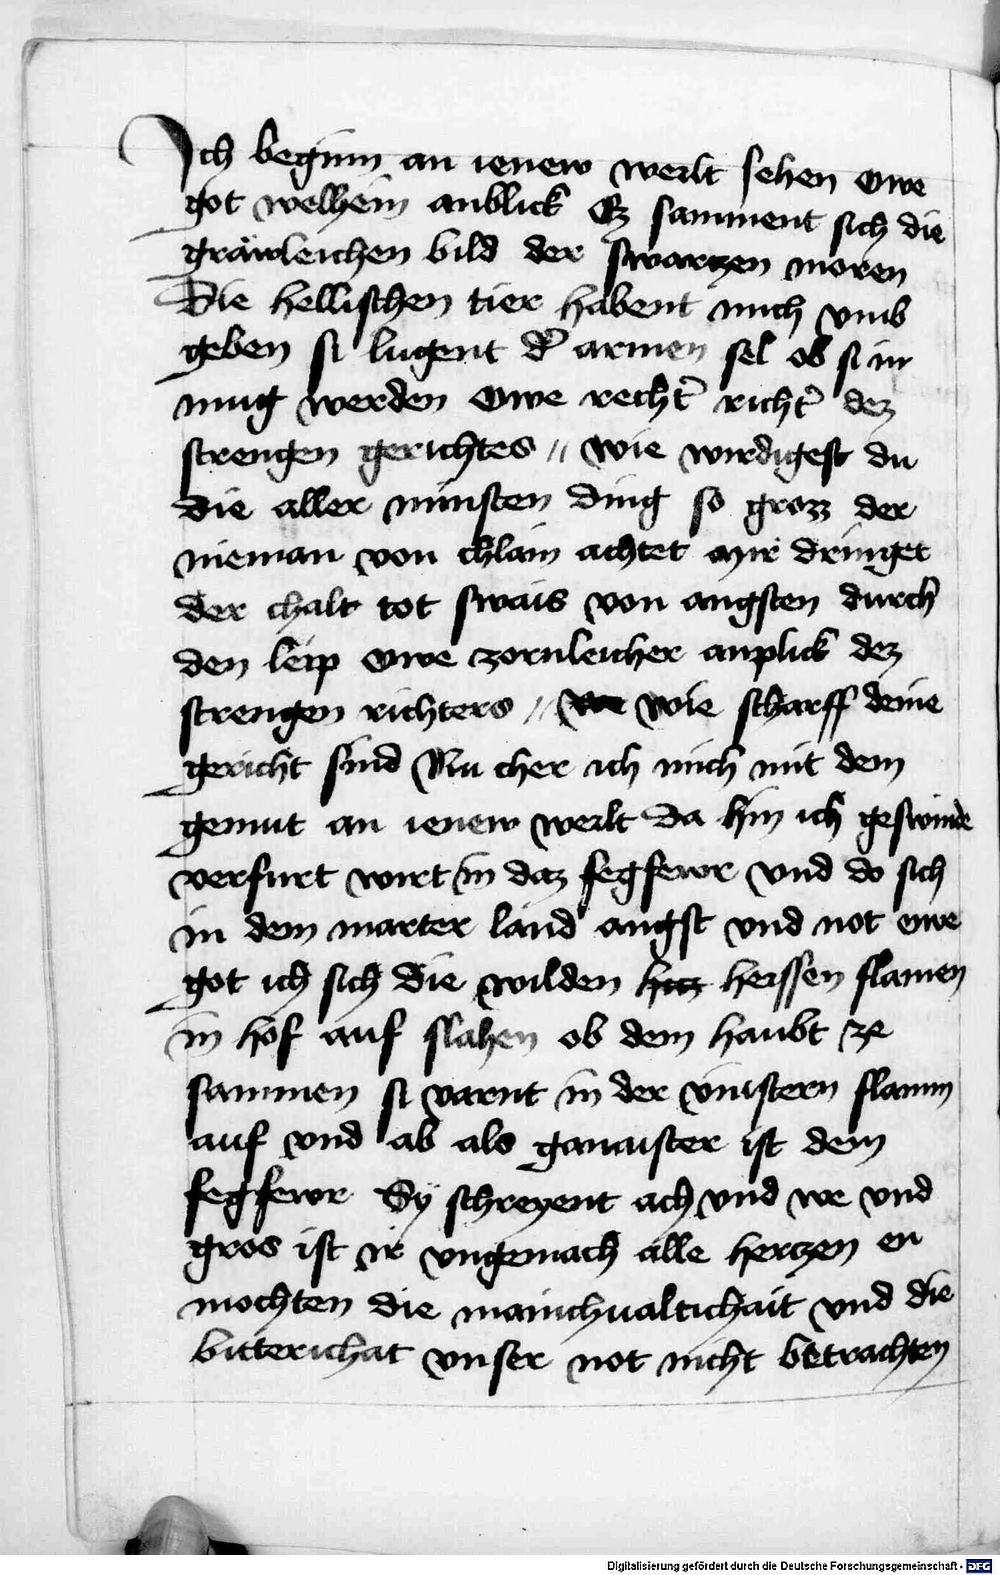 Ich beginn an ienew werlt sehen owe
got welhein anblick Ez samment sich die
gräwleichen bild der swartzen moren
Die hellischen tier habent mich vmb
geben si lugent d̉ armen sel ob si in
mug werden Owe recht̉ richt̉ dez
strengen gerichtes // wie wirdigest du
die aller minsten ding so grozz der
nieman von chlain achtet mir dringet
der chalt tot swais von angsten durch
den leip Owe zornleicher anplick dez
strengen richters // wie scharff deine
gericht sind Nu cher ich mich mit dem
gemut an ienew werlt da hin ich geswinde
verfurt wirt in daz fegfewr vnd do sich
in dem marter land angst vnd not owe
got ich sich die wilden hitz heissen flamen
in hof auf slahen ob dem haubt ze
sammen si varnt in der vinstern flamm
auf vnd ab als ganaister ist dem
fegfewr Sy schreyent ach vnd we vnd
gros ist ir vngemach alle hertzen en
mochten die mainchualtichait vnd die
bitterichat vnser not nicht betrachten
Digitalisierung gefördert durch die Deutsche Forschungsgemeinschaft - DFG